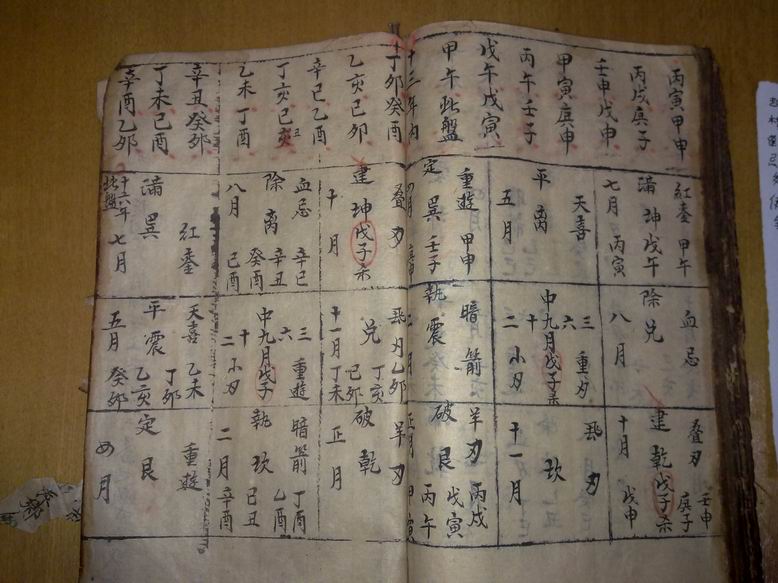 丙寅甲申
丙戌庚子
壬申戊申
甲寅庚申
丙午壬子
戊午戊寅
甲午此盤
十三年内
丁卯癸酉
乙亥己卯
辛巳乙酉
丁亥己亥三
乙未丁酉
辛丑癸卯
丁未己酉
辛酉乙卯
紅鸞 甲午
滿坤戊午
七月 丙寅
天喜
平离
五月
重遊 甲申
定巽壬子
叠刃
建坤戊子杀
十月
血忌 辛巳
除离 辛丑
癸酉
八月 己酉
紅鸞
滿巽
七月
十六年
此盤
血忌
除兑
八月
三 重刃
六
中九月戊子杀
十
二 小刃
暗箭
执震
飛刃乙卯
兑 丁亥
己卯
十一月丁未
三 重遊
六
中九月戊子
十
二 小刃
天喜 乙未
丁卯
平震 乙亥
五月 癸卯
叠刃 壬申
庚子
建乾戊子杀
十月 戊申
飛刃
坎
十一月
羊刃 丙戌
戊寅
破艮 丙午
正月 甲寅
羊刃
破乾
正月
暗箭 丁酉
乙酉
执坎 己丑
二月 辛酉
重遊
定艮
四月